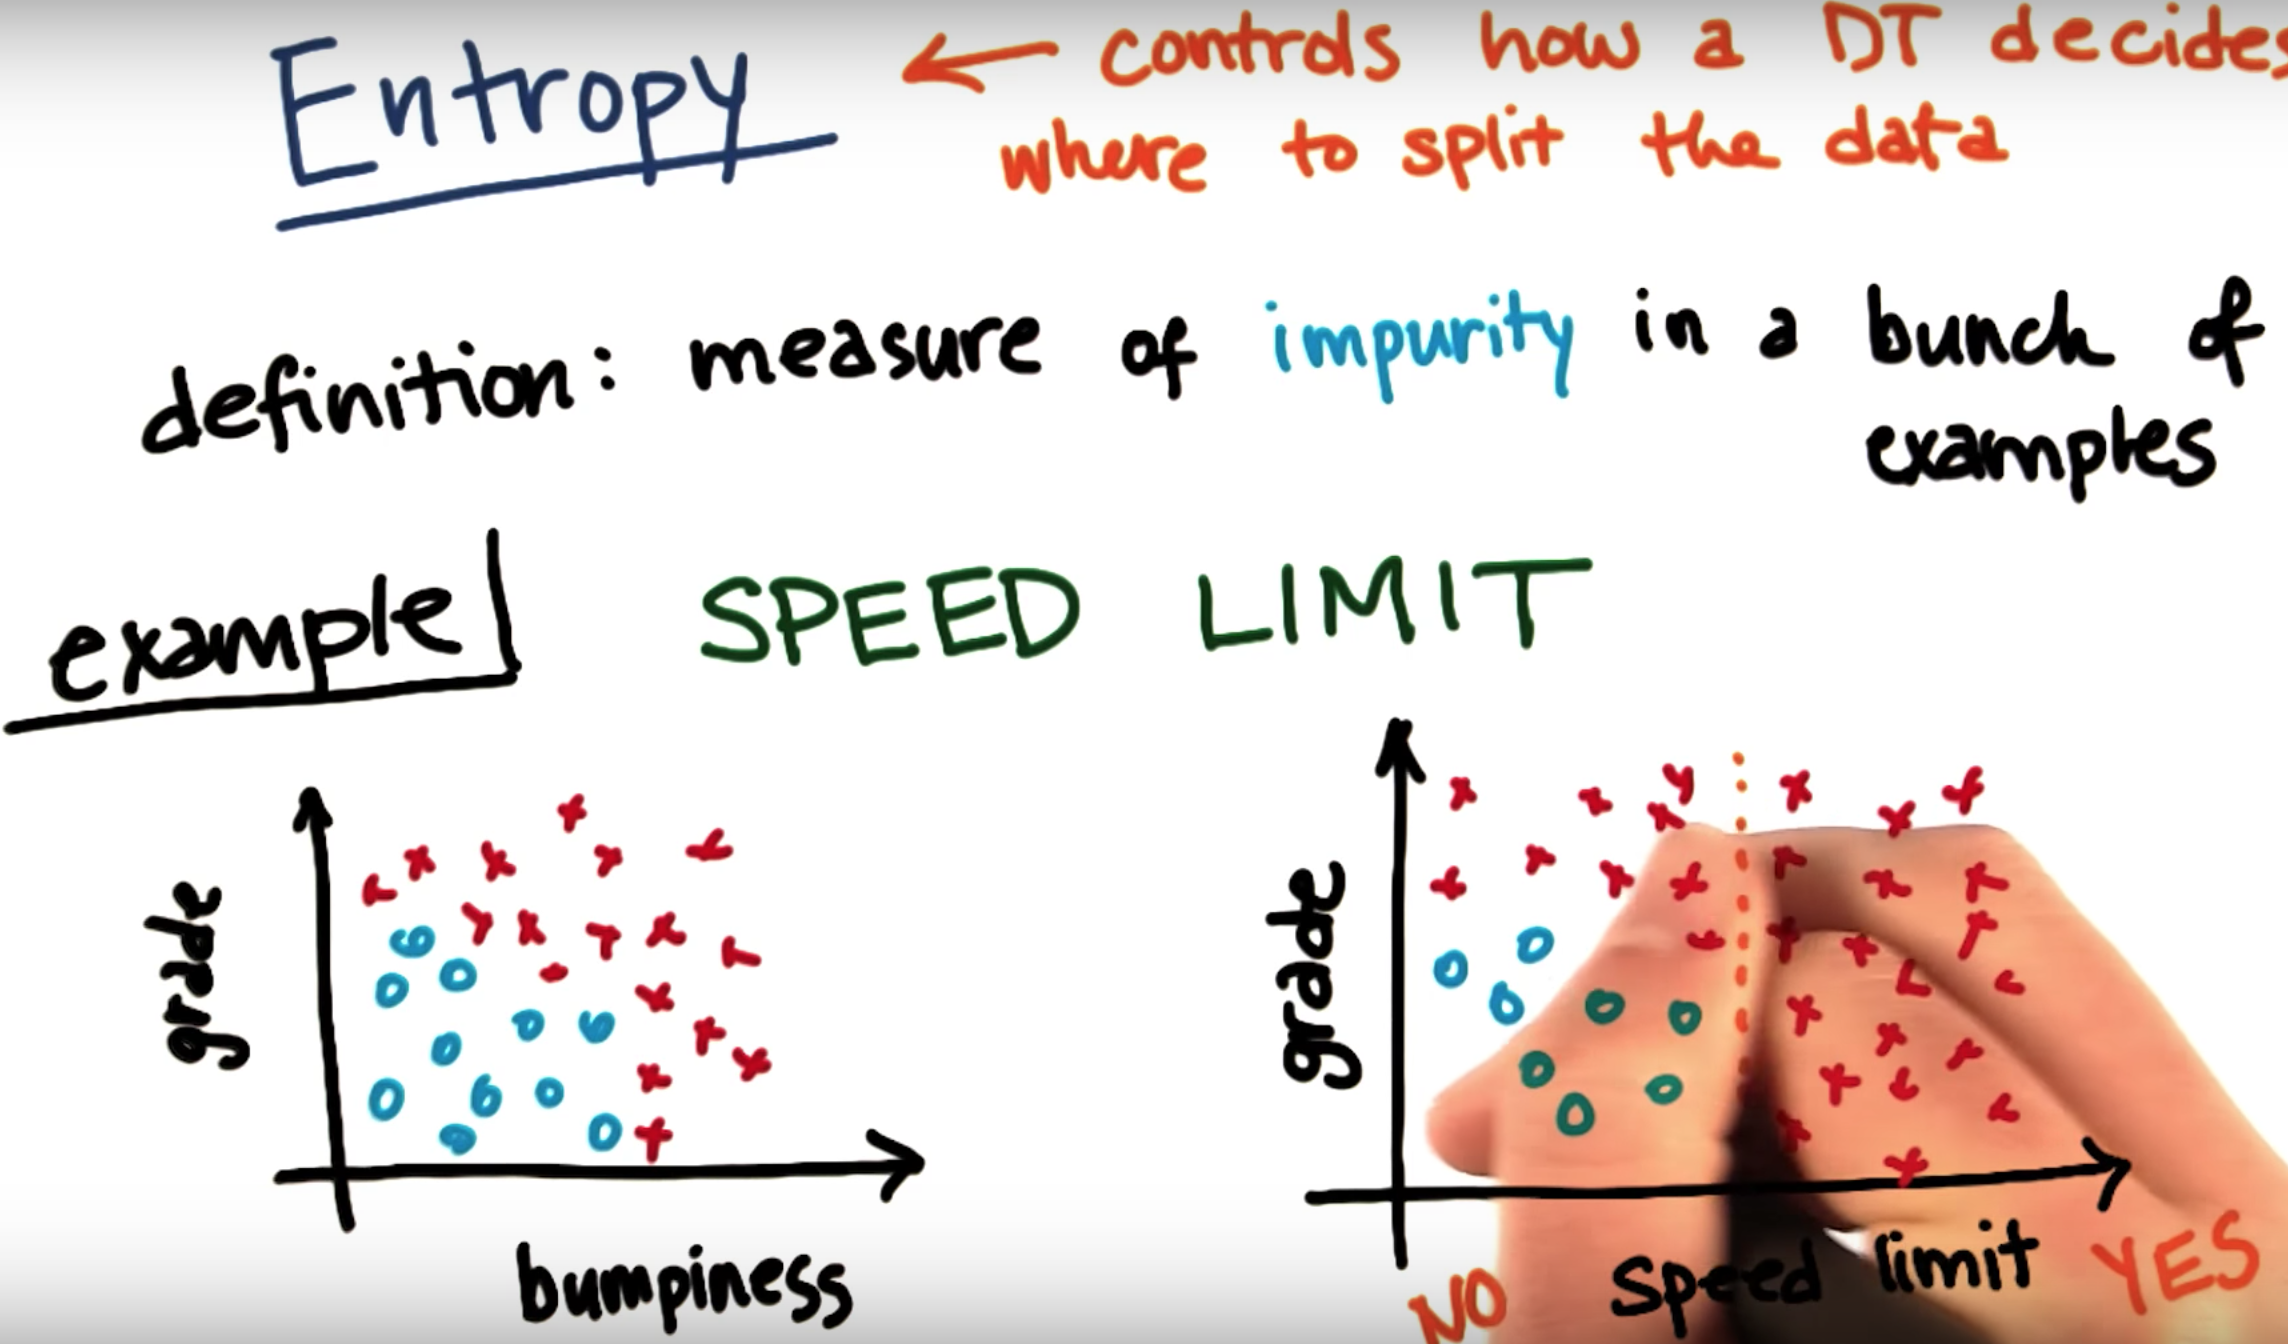 Entropy ← controls how a DT decides
where to split the data
definition: measure of impurity in a bunch of
examples
example SPEED LIMIT
grade
bumpiness
grade
NO speed limit YES